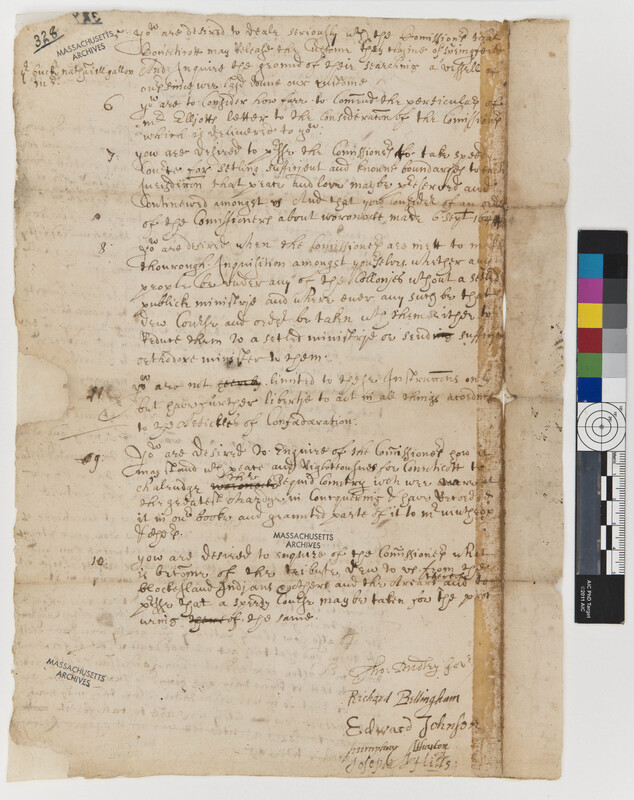 328
MASSACHUSETTS ARCHIVES
you are desired to deale seriously wth the Comissionrs that
Conecticott may release the Custome they require of Springfeild
and Inquire the ground of their searching a vessell of
our
6 you are to consider how farr to Comend the perticulers of
mr Elljotts letter to the Consideration of the Comissionrs
which is deliuered to yow
7 you are desired to presse the Comissionrs to take speedy
Course for setling sufficient and knowne boundarjes to each
Jurisdiction that peace and love may be preserved and
Continewed amongst vs And that you consider of an order
of the Comissioners about woronoake made 6 Sept 164
8 yow are desired when the Comissionrs are mett to make
thourough Inquisition amongst yourselves whether any
people be vnder any of the Collonjes wthout a setled
publick ministrje and where euer any such be that
dew Course and order be taken wth them either to
reduce them to a setled ministrje or sending sufficient
orthodoxe minister to them.
11 yow are not limited to these Instructions only
but haue further libertie to act in all things according
to the Articles of Confaederation.
9 yow are desired to Enquire of the Comissionrs how it
may stand wth peace and Righteousnes for Conecticott to
Chalendge the Pequid Countrey wch wee weare at
the greatest Charge in Concquering & haue Recorded
it in our bookes and grannted parte of it to mr winthrop
MASSACHUSETTS ARCHIVES
10 you are desired to enquire of the Comissionrs what
is become of the tribute dew to vs from the
blocke Island Indians & others and the arreares and to
presse that a speedy Course may be taken for the procuring of the same.
MASSACHUSETTS ARCHIVES
Tho: Dudley Govr
Richard Bellingham
Edward Johnson
Joseph Hills: